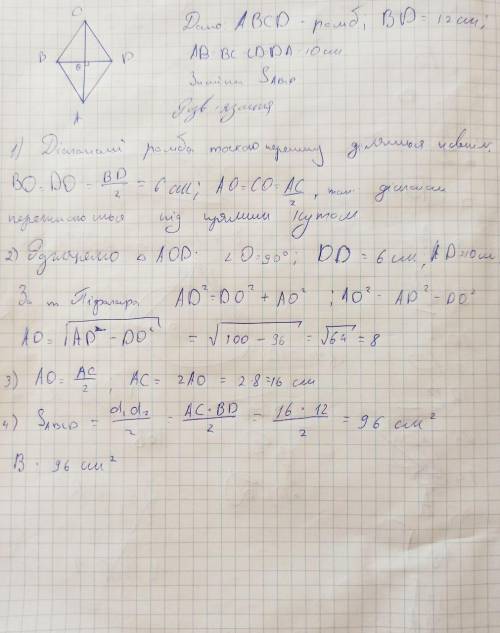 C
B O D
A
Дано ABCD - ромб, BD = 12 см;
AB=BC=CD=DA=10см
Знайти S ABCD
Розв'язання
1) Діагоналі ромба точкою перетину діляться навпіл.
BO=DO = BD/2 = 6 см; AO=CO=AC/2, діагоналі
перетинаються під прямим кутом
2) Розглянемо △ AOD. ∠O=90°; DO = 6 см, AD=10см
За т. Піфагора AD²=DO²+AO²; AO² = AD²-DO²
AO= √AD²-DO² = √100-36 = √64 = 8
3) AO= AC/2, AC= 2AO = 2·8=16 см
4) S ABCD = d₁d₂/2 = AC·BD/2 = 16·12/2 = 96 см²
В: 96 см²